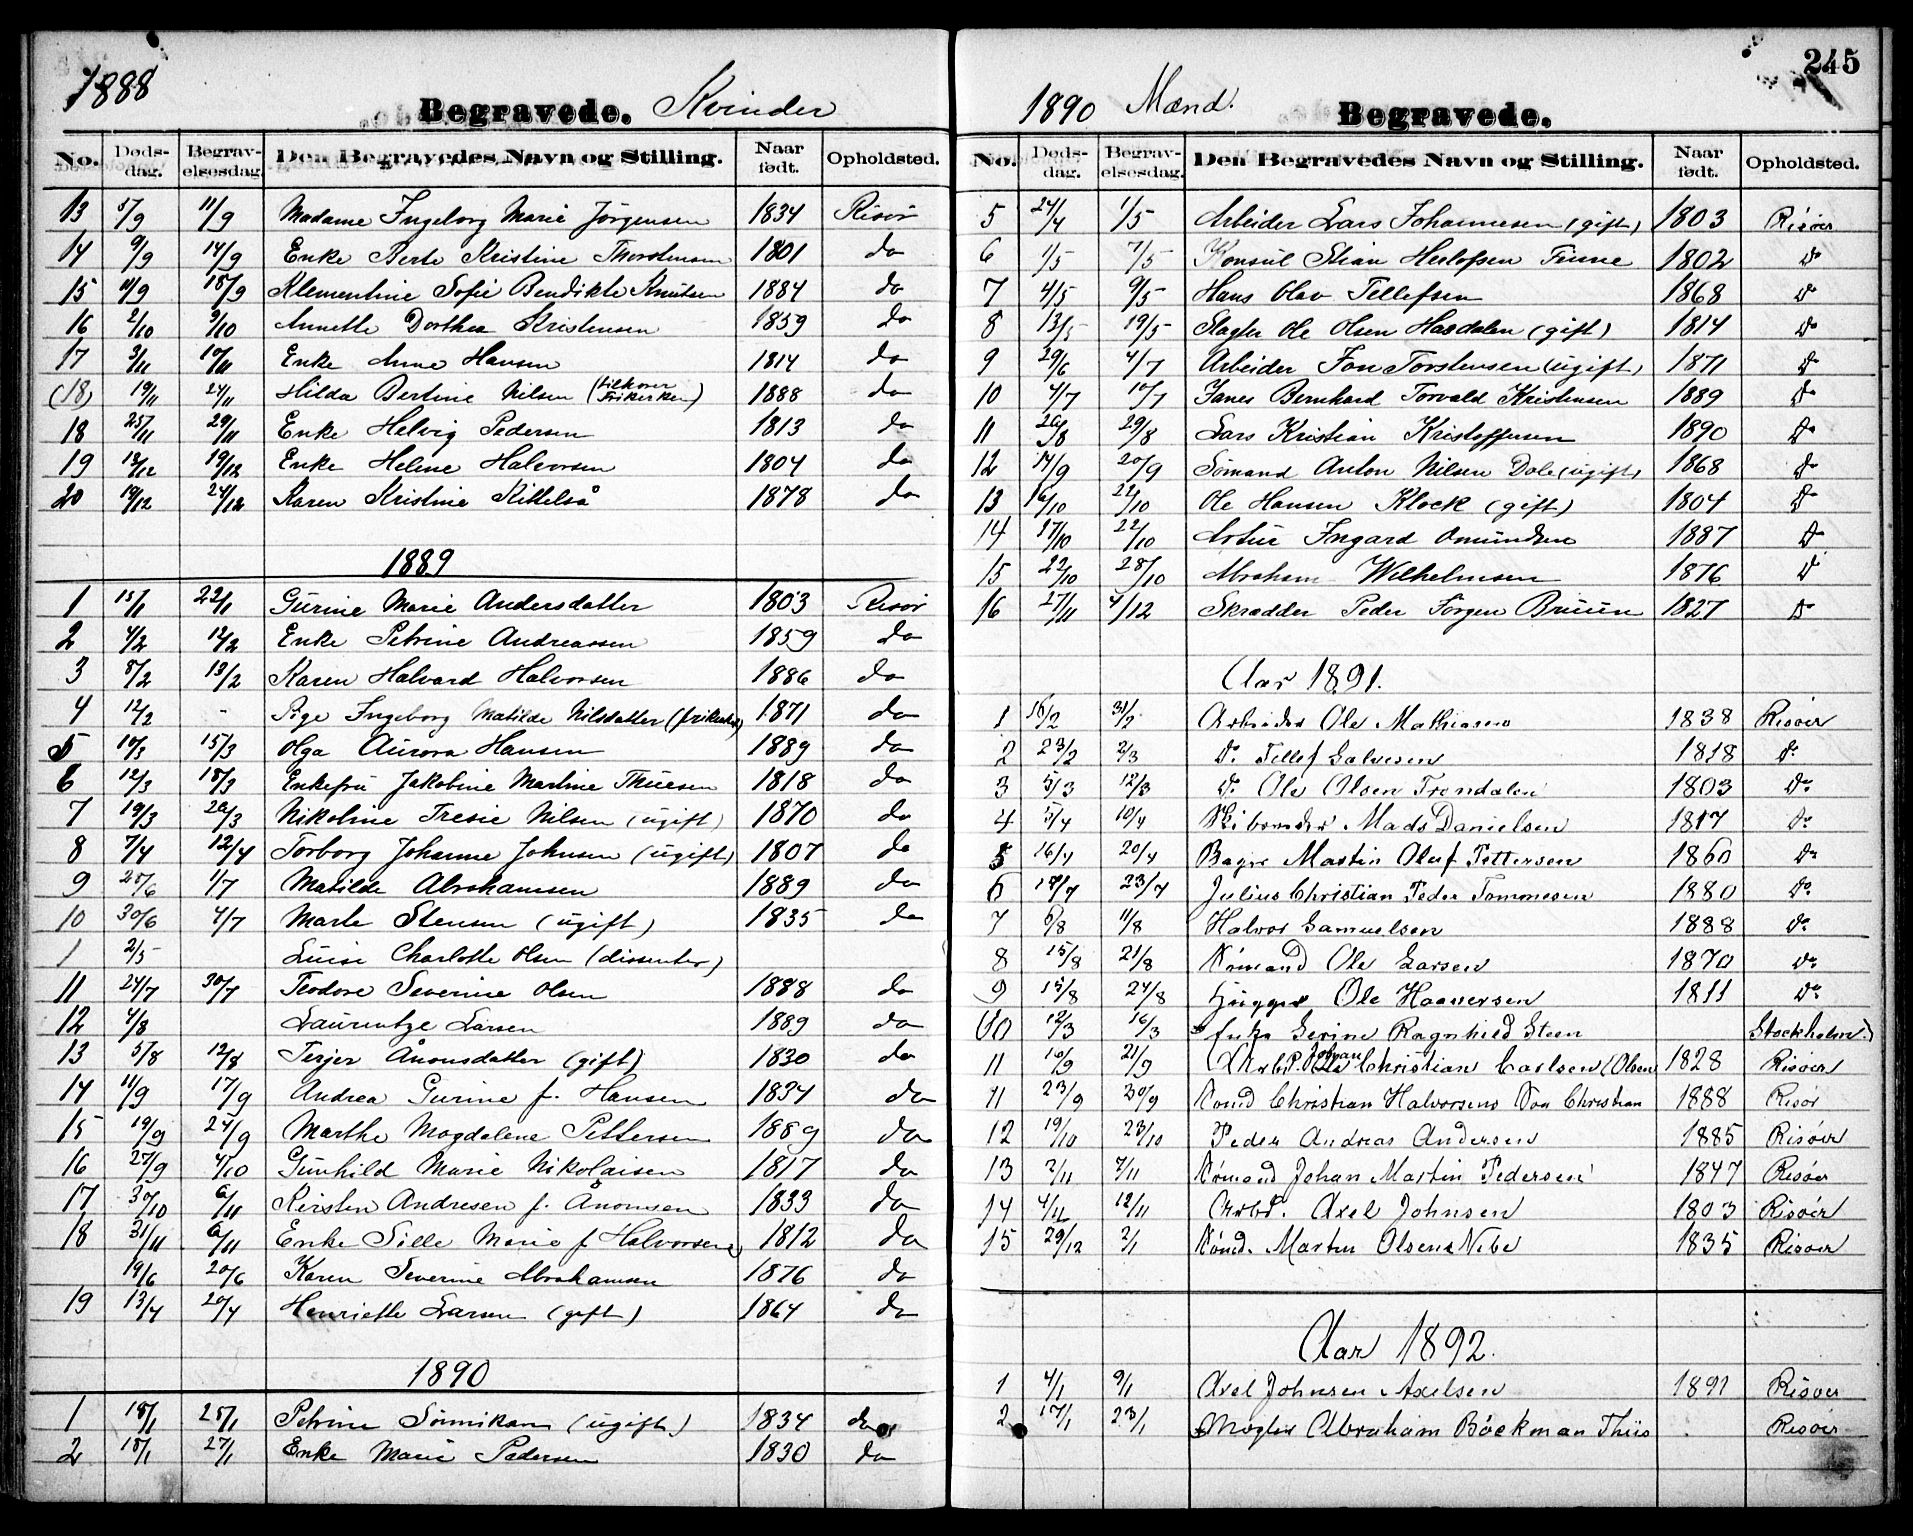 1888 Begravede. Kvinder
No. Døds-dag. Begrav-elsesdag. Den Begravedes Navn og Stilling. Naar født. Opholdsted.
13 5/9 11/9 Madame Ingeborg Marie Jörgensen 1834 Risör
14 9/9 14/9 Enke Berte Kristine Thorstensen 1801 do
15 11/9 18/9 Klementine Sofie Bendikte Knutsen 1884 do
16 2/10 9/10 Annette Dorthea Kristensen 1859 do
17 3/11 10/11 Enke Anne Hansen 1814 do
(18) 19/11 24/11 Hilda Bertine Nilsen 1888 do
18 25/11 29/11 Enke Helvig Pedersen 1813 do
19 13/12 19/12 Enke Helene Halvorsen 1804 do
20 19/12 24/12 Karen Kristine Kittelså 1878 do
1889
1 15/1 22/1 Gurine Marie Andersdatter 1803 Risör
2 4/2 12/2 Enke Petrine Andreassen 1859 do
3 8/2 13/2 Karen Halvard Halvorsen 1886 do
4 12/2 - Pige Ingeborg Matilde Nilsdatter 1871 do
5 10/3 15/3 Olga Aurora Hansen 1889 do
6 12/3 18/3 Enkefru Jakobine Martine Thuesen 1818 do
7 19/3 26/3 Nikoline Tresie Nilsen (ugift) 1870 do
8 7/4 12/4 Torborg Johanne Johnsen (ugift) 1807 do
9 28/6 1/7 Matilde Abrahamsen 1889 do
10 30/6 4/7 Marte Stensen (ugift) 1835 do
1 2/5 Luise Charlotte Olsen (dissenter)
11 24/7 30/7 Teodore Severine Olsen 1888 do
12 4/8 Laurentze Larsen 1889 do
13 5/8 12/8 Terjer Ånonsdatter (gift) 1830 do
14 11/9 17/9 Andrea Gurine f. Hansen 1834 do
15 19/9 24/9 Marthe Magdalene Pettersen 1889 do
16 27/9 4/10 Gunhild Marie Nikolaisen 1817 do
17 30/10 6/11 Kirsten Andresen f. Ånonsen 1833 do
18 31/11 6/11 Enke Sille Marie f Halvorsen 1812 do
19/6 20/6 Karen Severine Abrahamsen 1876 do
19 13/4 20/4 Henriette Larsen (gift) 1864 do
1890
1 18/1 25/1 Petrine (ugift) 1834 do
2 18/1 27/1 Enke Marie Pedersen 1830 do
1890 Mænd. Begravede. 245
No. Døds-dag. Begrav-elsesdag. Den Begravedes Navn og Stilling. Naar født. Opholdsted.
5 24/4 1/5 Arbeider Lars Johannesen (gift) 1803 Risöer
6 1/5 7/5 Konsul Stian Herlofsen Finne 1802 Do
7 4/5 9/5 Hans Olav Tellefsen 1868 Do
8 13/5 19/5 Slagter Ole Olsen Hasdalen (gift) 1814 Do
9 29/6 4/7 Arbeider Jon Torstensen (ugift) 1871 Do
10 4/7 10/7 Janes Bernhard Torvald Kristensen 1889 Do
11 26/8 29/8 Lars Kristian Kristoffersen 1890 Do
12 14/9 20/9 Sömand Anton Nilsen Dole (ugift) 1868 Do
13 16/10 22/10 Ole Hansen Klock (gift) 1804 Do
14 17/10 22/10 Artur Ingard Omundsen 1887 Do
15 22/10 28/10 Abraham Wilhelmsen 1876 Do
16 27/11 4/12 Skrædder Peder Jörgen Bruun 1827 Do
Aar 1891.
1 16/2 Arbeider Ole Mathiasen 1838 Risöer
2 23/2 2/3 Do Tellef Salvesen 1818 Do
3 5/3 12/3 Do Ole Olsen Trondalen 1803 Do
4 5/4 10/4 Mads Danielsen 1817 Do
5 16/4 20/4 Bager Martin Oluf Pettersen 1860 Do
6 18/7 23/7 Julius Christian Peder Tommesen 1880 Do
7 6/8 11/8 Halvor Samuelsen 1888 Do
8 15/8 21/8 Sömand Ole Larsen 1870 Do
9 15/8 24/8 Ole Haaversen 1811 Do
(10 12/3 16/3 Enke Serine Ragnhild Steen Stockholm.)
11 16/9 21/9 Johan Christian Carlsen (Olsen 1828 Risöer
11 23/9 30/9 Sömd Christian Halvorsens Sön Christian 1888 Risör
12 19/10 23/10 Peder Andreas Andersen 1885 Risöer
13 2/11 7/11 Sömand Johan Martin Pedersen 1847 Risöer
14 4/11 12/11 Arbd. Axel Johnsen 1803 Risöer
15 29/12 2/1 Sömd. Martin Olsen Vibe 1835 Risöer
Aar 1892.
1 4/1 9/1 Axel Johnsen Axelsen 1891 Risöer
2 17/1 23/1 Mægler Abraham Böckman Thiis Risöer